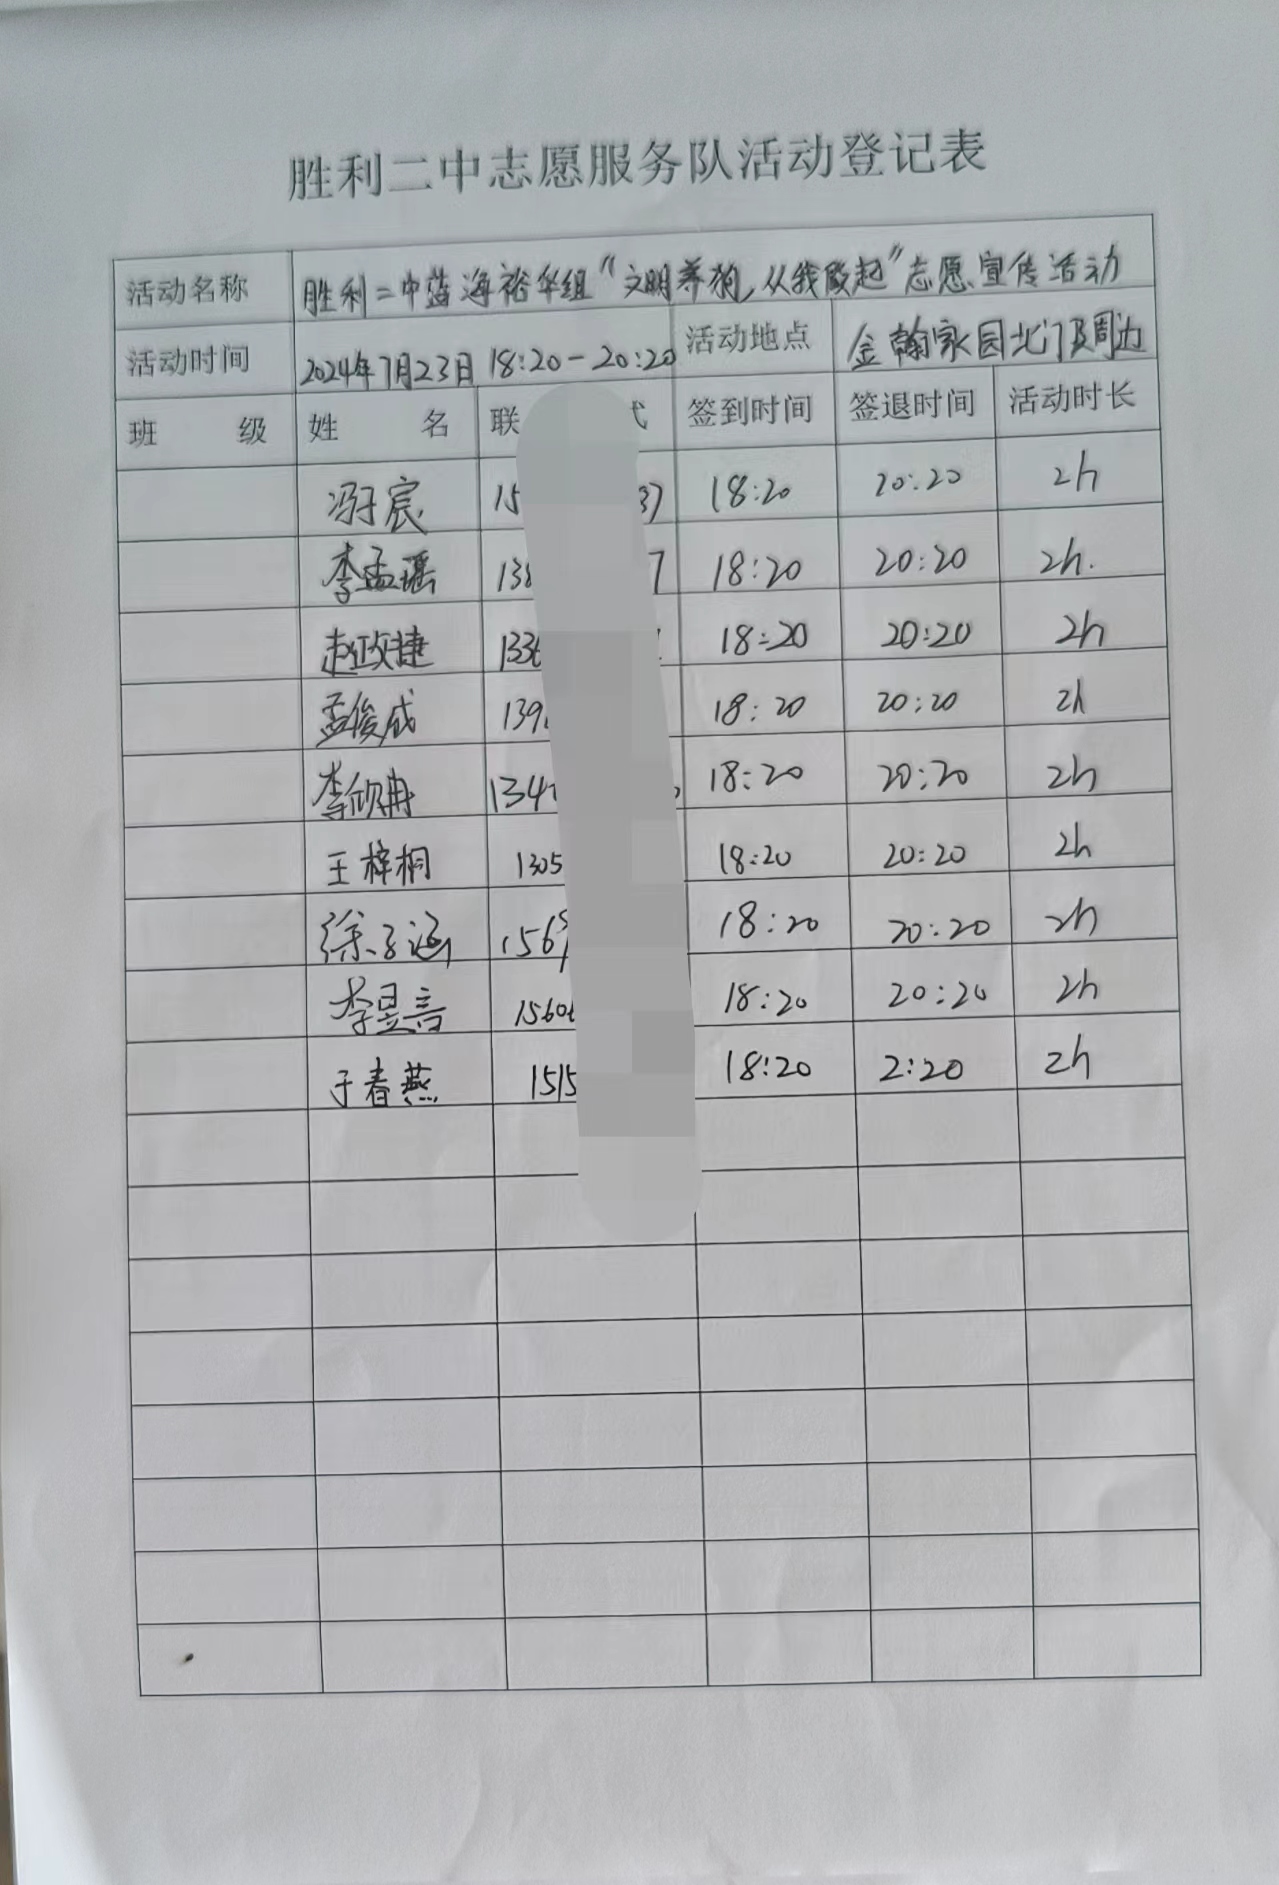 胜利二中志愿服务队活动登记表
活动名称 胜利二中蓝海裕华组“文明养狗,从我做起”志愿宣传活动
活动时间 2024年7月23日 18:20-20:20 活动地点 金翰家园北门及周边
班 级 姓 名 联 式 签到时间 签退时间 活动时长
冯子宸 15 37 18:20 20:20 2h
李孟瑶 138 7 18:20 20:20 2h.
赵政捷 1336 18:20 20:20 2h
孟俊成 139 18:20 20:20 2h
李欣冉 134 18:20 20:20 2h
王梓桐 1305 18:20 20:20 2h
徐子涵 156 18:20 20:20 2h
李昱言 1560 18:20 20:20 2h
于春燕 1515 18:20 2:20 2h